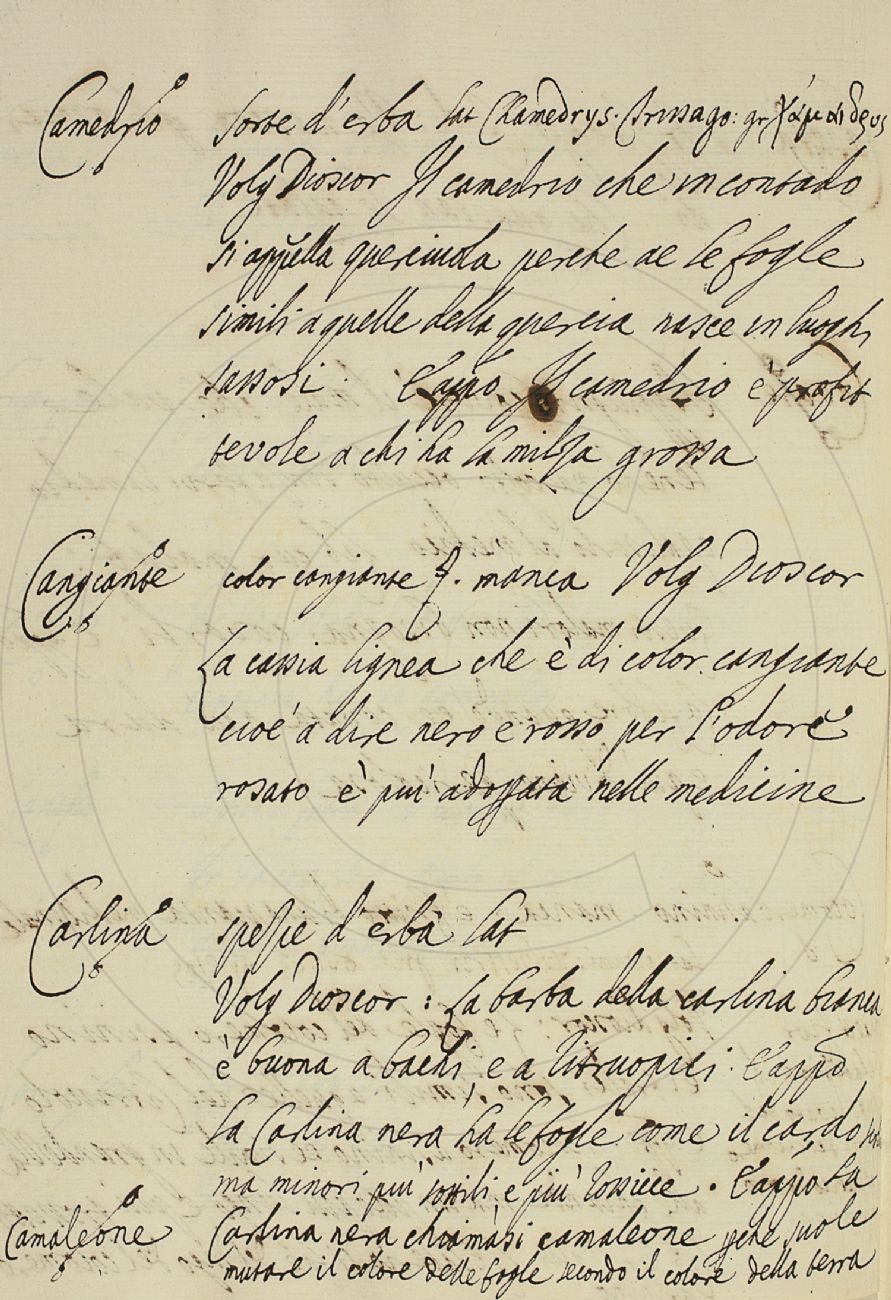 Camedrio sorte d'erba lat Chamedrys. Trissago: gr χάμαιδρυς
Volg Dioscor Il camedrio che in contado
si appella querciuola perche ae le fogle
simili a quelle della quercia nasce in luoghi
sassosi. E appo. Il camedrio è profit
tevole a chi ha la milza grossa
Cangiante color cangiante . manca Volg Dioscor
La cassia lignea che è di color cangiante
cioè a dire nero e rosso per l'odore
rosato è più adoprata nelle medicine
Carlina spezie d'erba lat
Volg Dioscor: La barba della carlina bianca
è buona a bachi, e a litruopici. E appo
la Carlina nera ha le fogle come il cardo
ma minori più sottili e più rossicce. E appo La
Camaleone Carlina nera chiamasi camaleone pche suole
mutare il colore delle fogle secondo il colore della terra